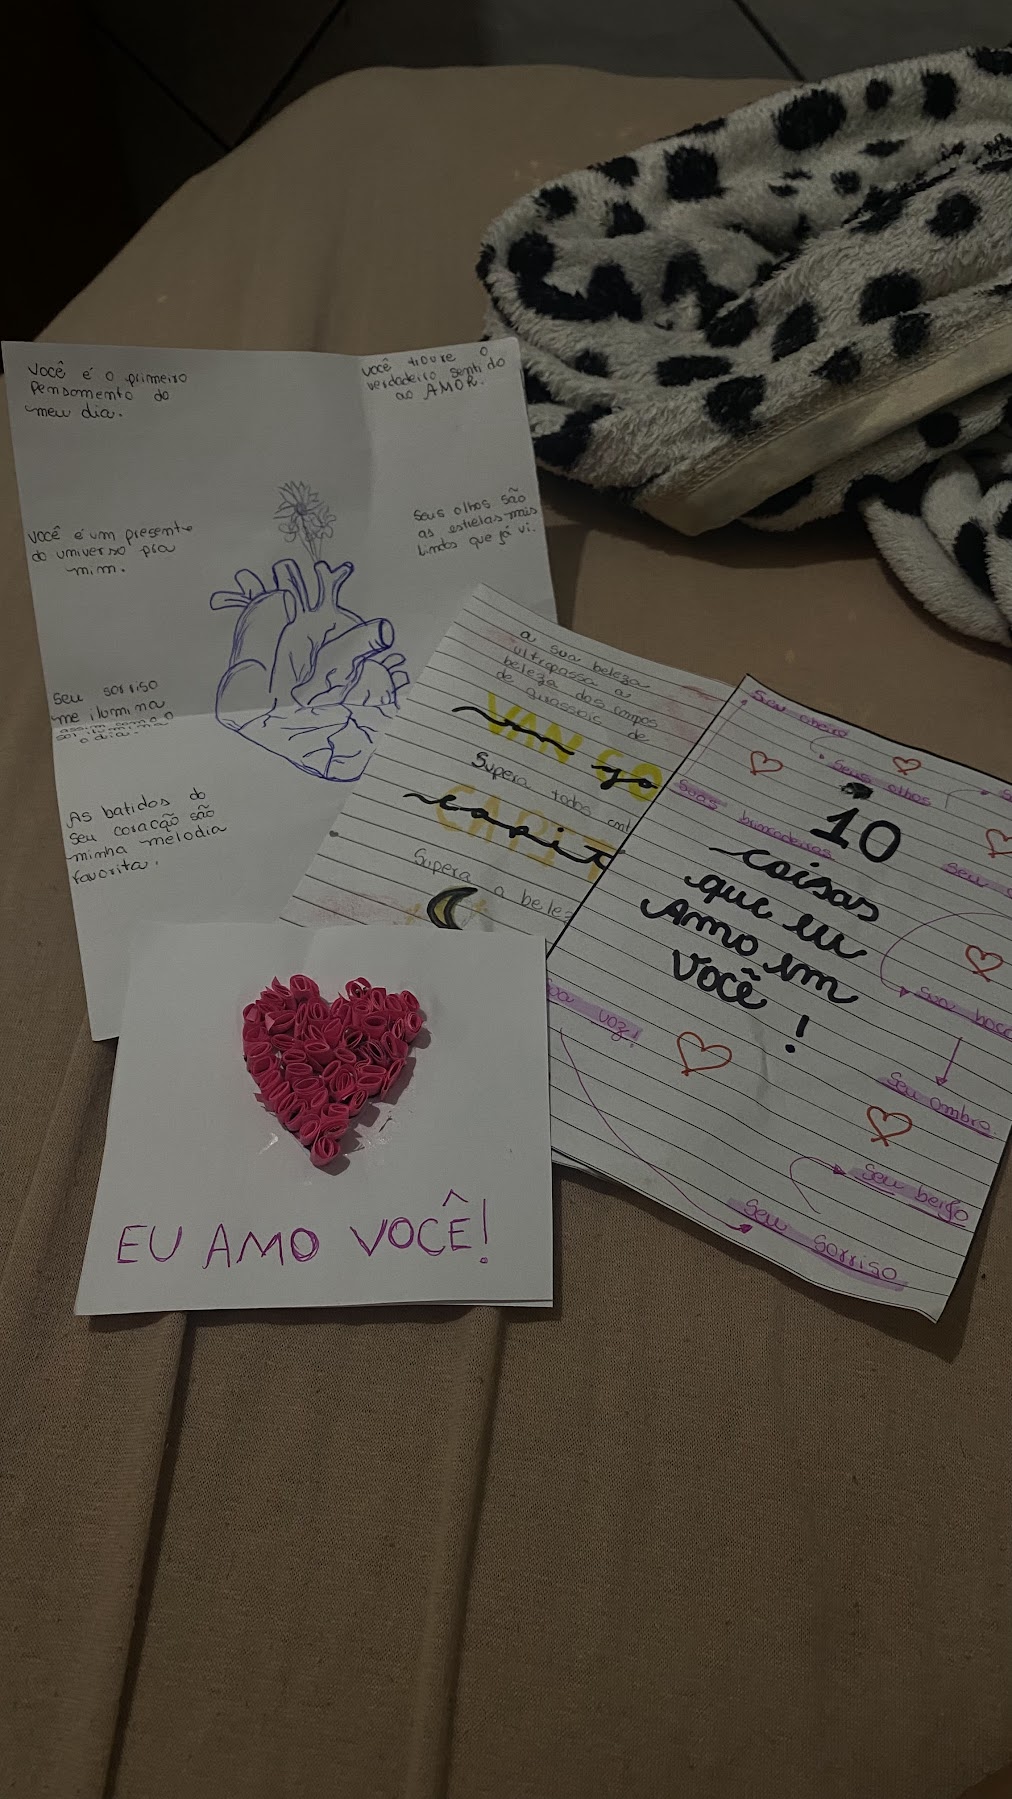 Você é o primeiro
Pensamento do
meu dia.
Você trouxe o
verdadeiro sentido
ao AMOR.
Você é um presente
do universo pra
mim.
Seus olhos são
as estrelas mais
lindas que já vi.
Seu sorriso
me ilumina
assim como o
sol ilumina
o dia.
As batidas do
seu coração são
minha melodia
favorita.
a sua beleza
ultrapassa a
beleza dos campos
de girassois de
VAN GO
van go
Supera todos
CAPIT
capit
Supera a beleza
Seu cheiro
Seus olhos
Suas brincadeiras
10
coisas
que eu
Amo em
Você!
Seu
Sua boca
Sua voz!
Seu ombro
Seu beijo
Seu sorriso
EU AMO VOCÊ!